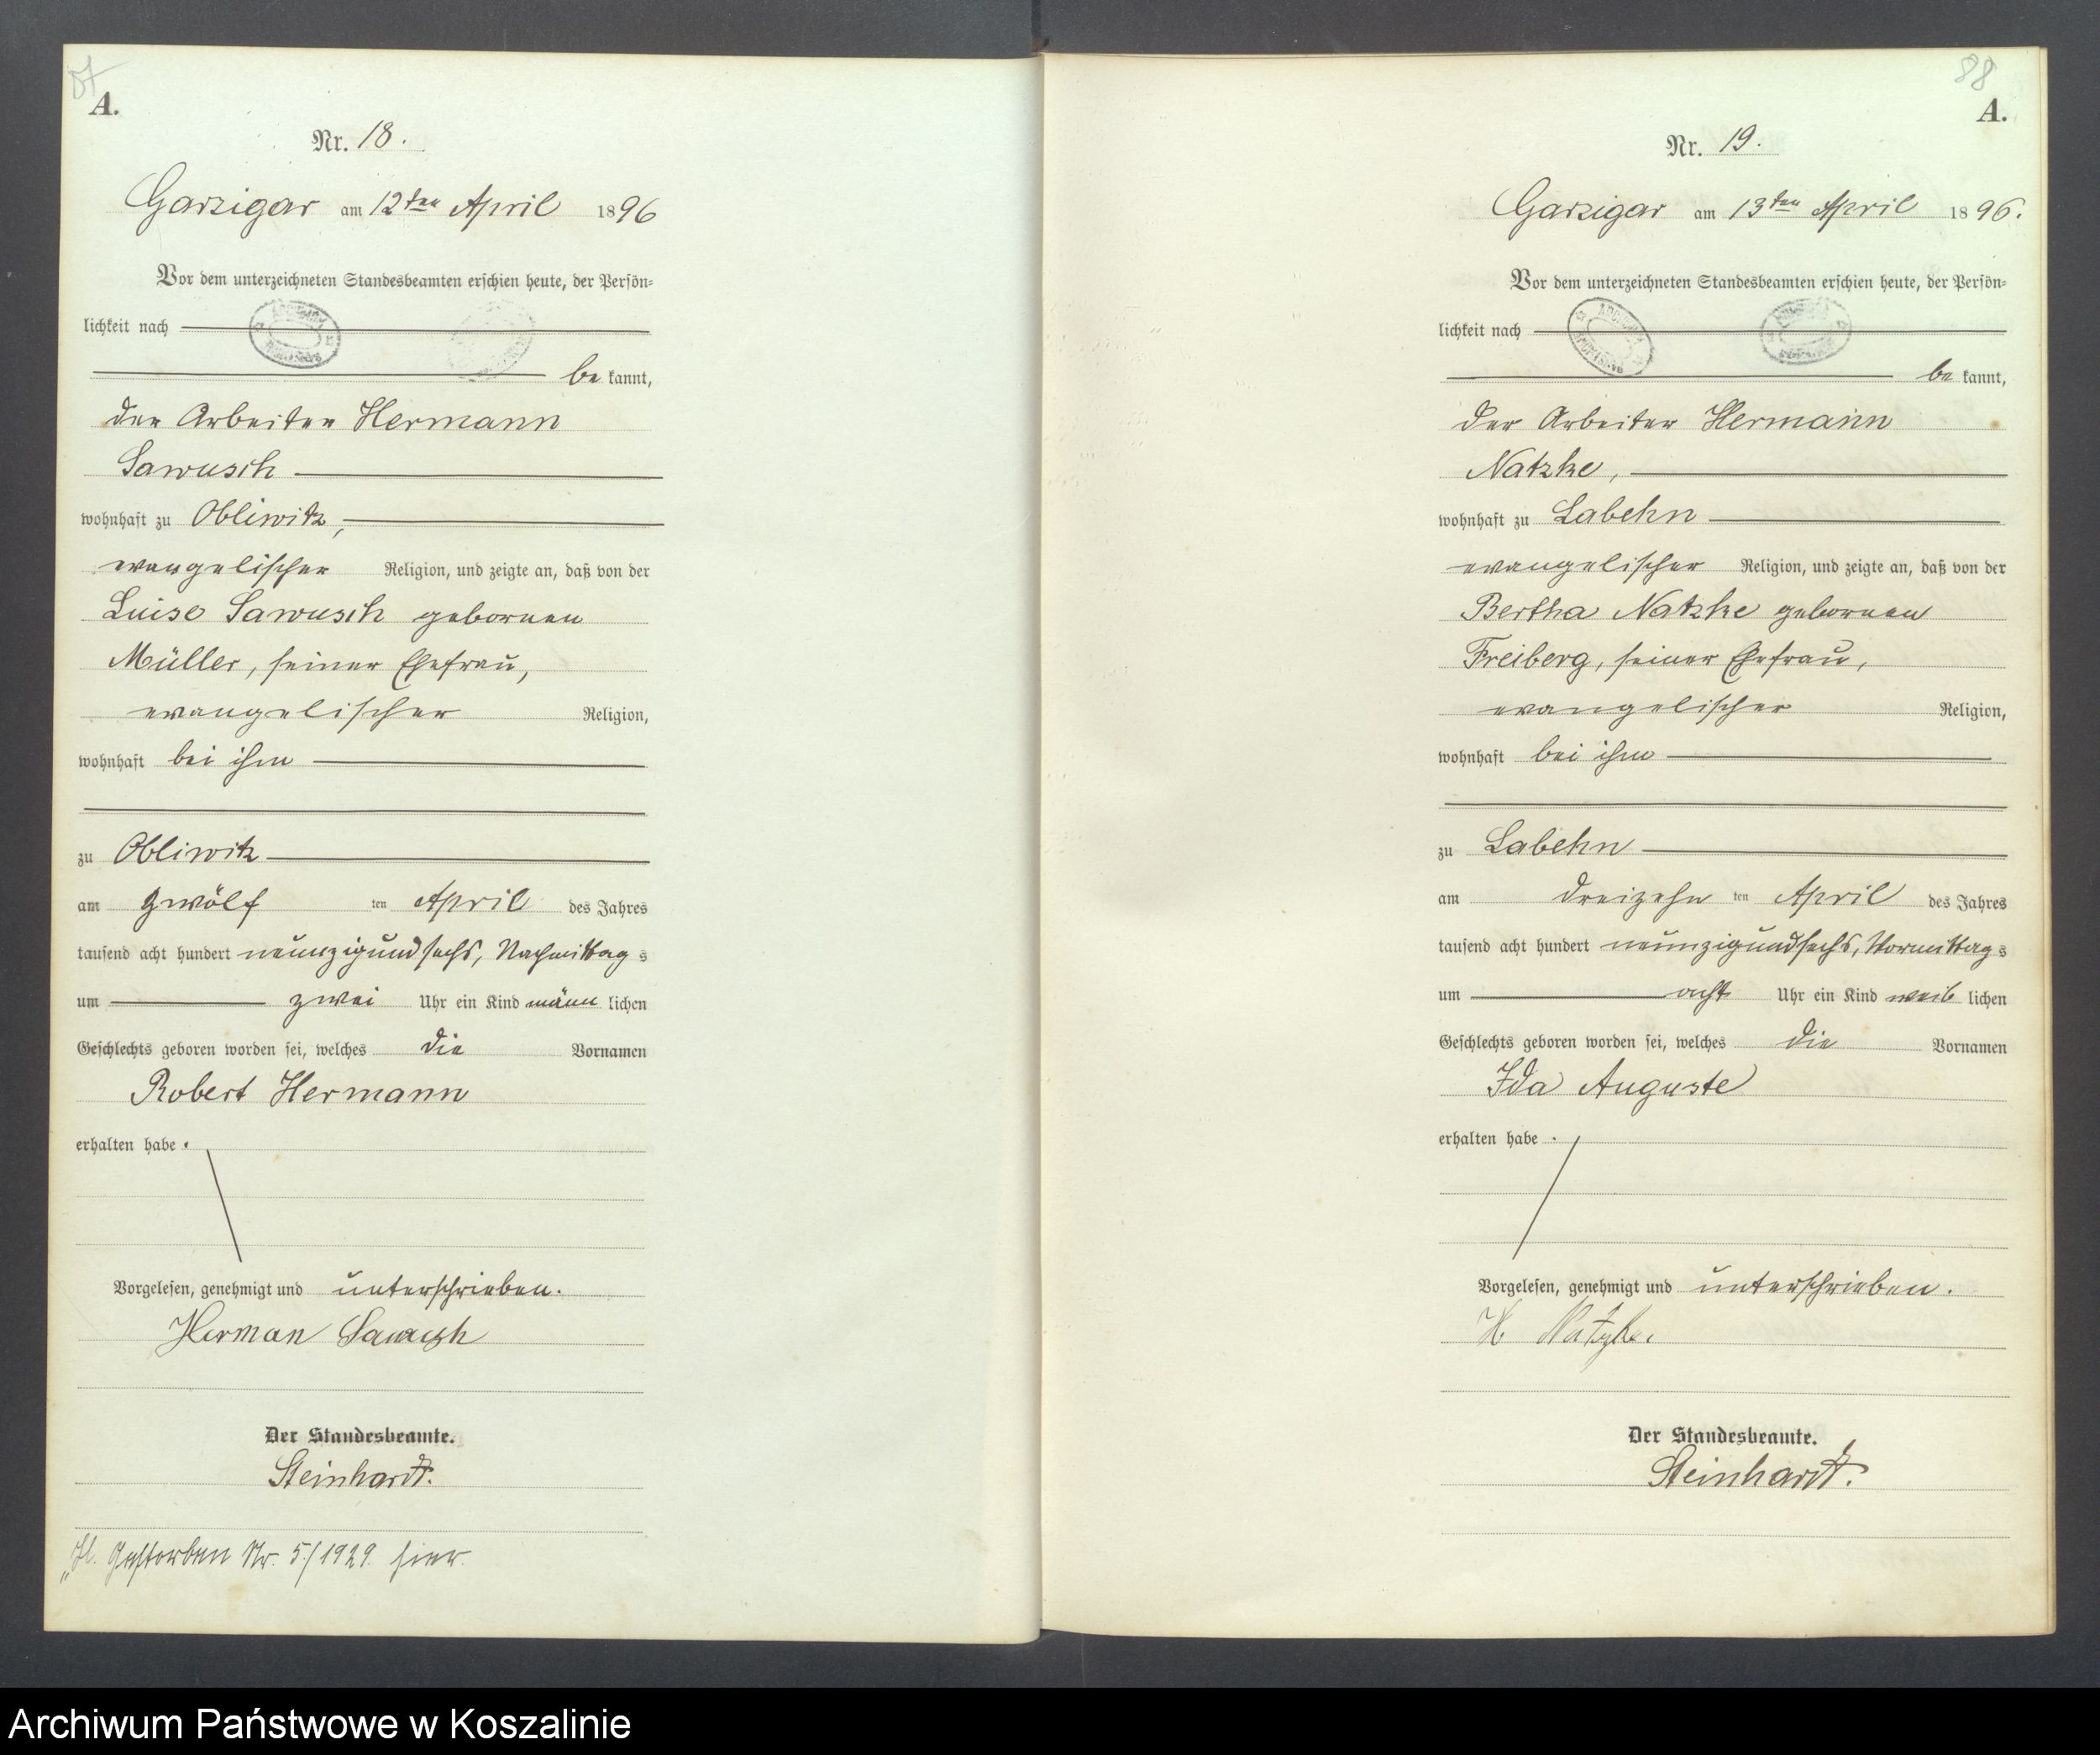 87
A.
Nr. 18.
Garzigar am 12ten April 1896
Vor dem unterzeichneten Standesbeamten erschien heute, der Persön=
lichkeit nach
be kannt,
der Arbeiter Hermann
Sawusch
wohnhaft zu Obliwitz,
evangelischer Religion, und zeigte an, daß von der
Luise Sawusch geborenen
Müller, seiner Ehefrau,
evangelischer Religion,
wohnhaft bei ihm
zu Obliwitz
am zwölf ten April des Jahres
tausend acht hundert neunzigundsechs, Nachmittag s
um zwei Uhr ein Kind männ lichen
Geschlechts geboren worden sei, welches die Vornamen
Robert Hermann
erhalten habe.
Vorgelesen, genehmigt und unterschrieben.
Herman Sawusch
Der Standesbeamte.
Steinhardt.
Gestorben Nr. 5/1929 hier.
88
A.
Nr. 19.
Garzigar am 13ten April 1896.
Vor dem unterzeichneten Standesbeamten erschien heute, der Persön=
lichkeit nach
be kannt,
der Arbeiter Hermann
Natzke,
wohnhaft zu Labehn
evangelischer Religion, und zeigte an, daß von der
Bertha Natzke geborenen
Freiberg, seiner Ehefrau,
evangelischer Religion,
wohnhaft bei ihm
zu Labehn
am dreizehn ten April des Jahres
tausend acht hundert neunzigundsechs, Vormittag s
um acht Uhr ein Kind weib lichen
Geschlechts geboren worden sei, welches die Vornamen
Ida Auguste
erhalten habe.
Vorgelesen, genehmigt und unterschrieben.
H Natzke.
Der Standesbeamte.
Steinhardt.
Archiwum Państwowe w Koszalinie